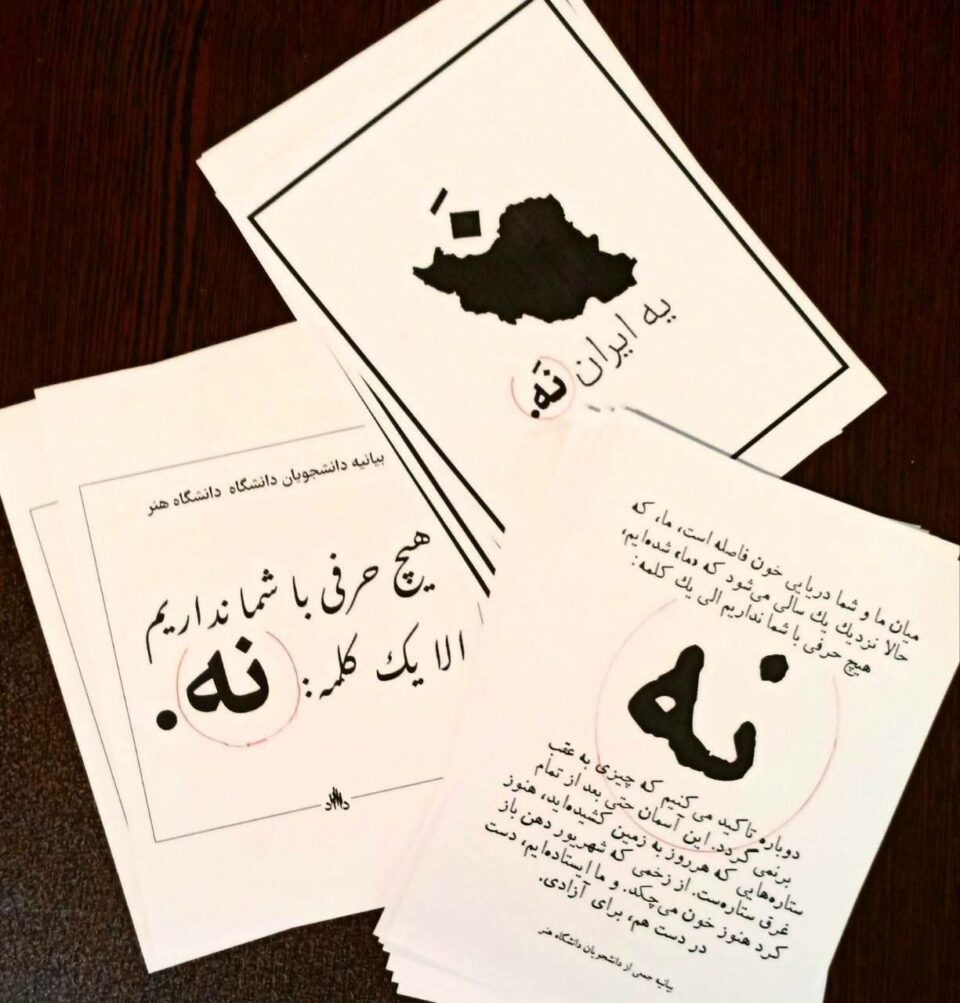 نَه
به ایران نَه.
بیانیه دانشجویان دانشگاه دانشگاه هنر
هیچ حرفی با شما نداریم
الا یک کلمه:
نه.
داد
میان ما و شما دریایی خون فاصله است، ما، که
حالا نزدیك یك سالی می‌شود که «ما» شده‌ایم،
هیچ حرفی با شما نداریم الی یك کلمه:
نه
دوباره تاکید می کنیم که چیزی به عقب
برنمی گردد. این آسمان حتی بعد از تمام
ستاره‌هایی که هرروز به زمین کشیده‌اید، هنوز
غرق ستاره‌ست. از زخمی که شهریور دهن باز
کرد هنوز خون می‌چکد. و ما ایستاده‌ایم، دست
در دست هم، برای آزادی.
بیانیه جمعی از دانشجویان دانشگاه هنر